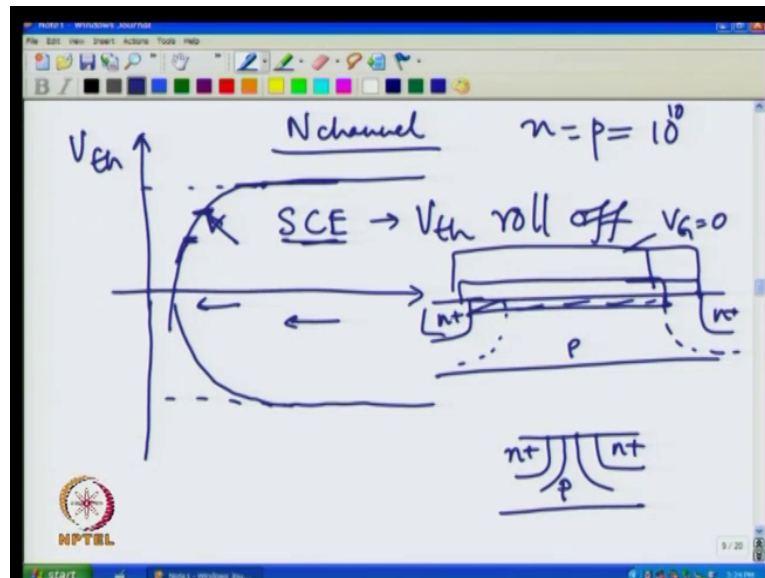 Note1 - Windows Journal
File Edit View Insert Actions Tools Help
B I
N channel
n = p = 10^10
Vth
SCE → Vth roll off
VG=0
n+
n+
p
n+
n+
p
NPTEL
9/20
start
Note1 - Windows Jou...
3:24 PM